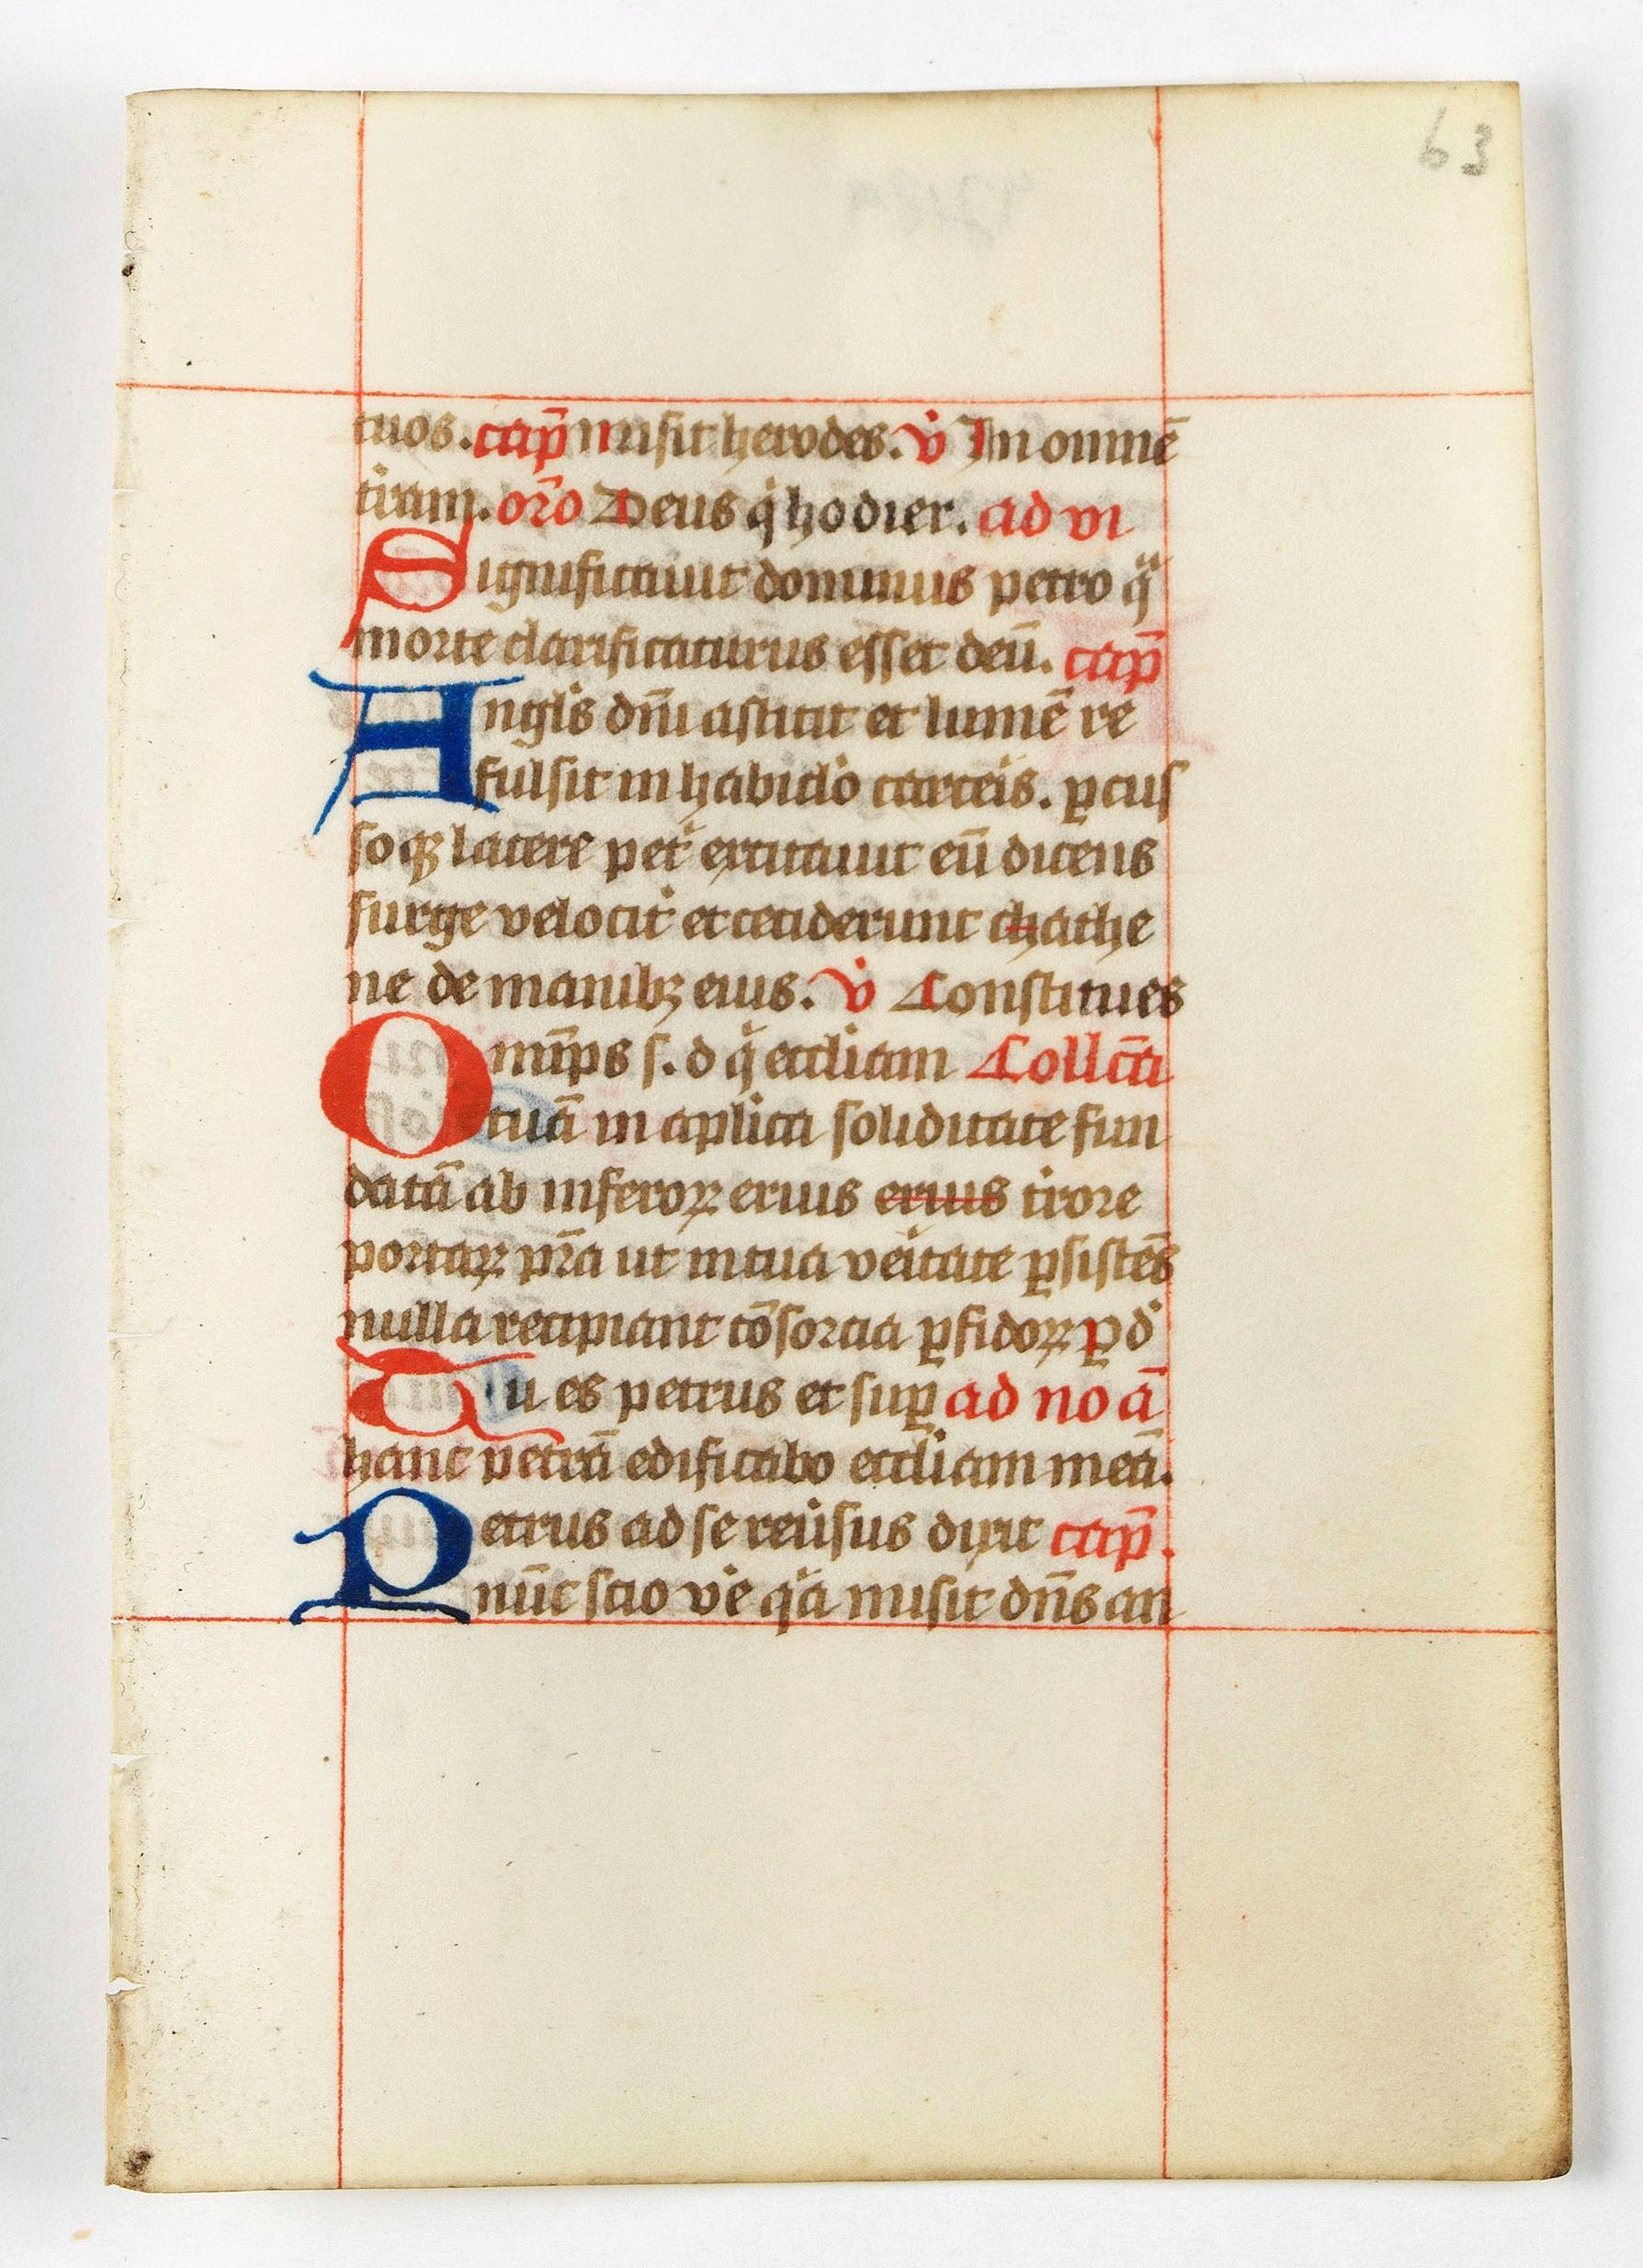 63
tuos. cap̄ misit herodes. v̇ In omnē
tr̄am. or̄o Deus q̇ hodier. ad vi
Significauit dominus petro q̈
morte clarificaturus esset deū. cap̄
Angl̓s dn̄i astitit et lumē re
fulsit in habicl̓o carceis. ꝑcus
soqꝫ latere pet̓ excitauit eū dicens
surge velocit̓ et ceciderunt chathe
ne de manibꝫ eius. v̇ Constitues
Omīps s. d q̇ eccliam Collc̄a
tuā in aplica soliditate fun
datā ab inferoꝝ eruis eruis t̓rore
portaꝝ pr̄a ut in tua veitate ꝑsistēs
nulla recipiant cōsorcia ꝑfidoꝝ ꝑ d̓
Tu es petrus et suꝑ ad no ā
hanc petrā edificabo eccliam meā.
Petrus ad se reu̓sus dixit cap̄.
nūc scio ve̓ q̓a misit dn̄s an